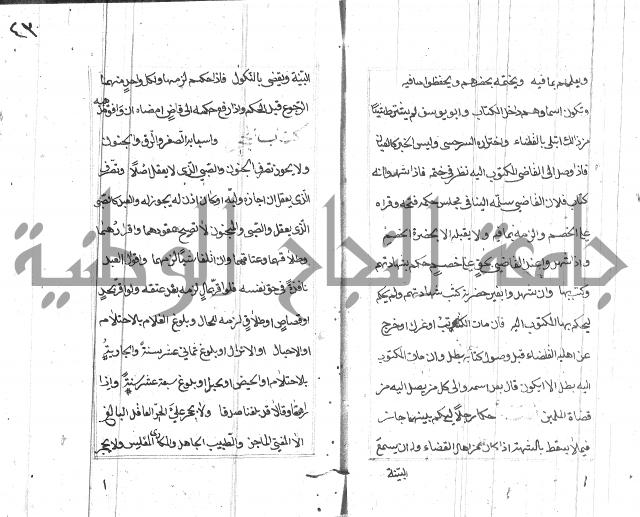 ويعلمهم بما فيه ويختمه بحضرتهم ويحفظوا ما فيه
وتكون اسماؤهم داخل الكتاب وابو يوسف لم يشترط شيئا
من ذلك لما ابتلى بالقضاء واختاره السرخسي وليس الخبر كالعيان
فاذا وصل الى القاضي المكتوب اليه نظر في ختمه فاذا شهدوا انه
كتاب فلان القاضي سلمه الينا في مجلس حكمه فتحه وقراه
على الخصم والزمه بما فيه ولا يقبله الا بحضرة الخصم
واذا شهدوا عند القاضي بحق على خصم حكم بشهادتهم
وكتب بها وان شهدوا بغير حضرته كتب شهادتهم ولم يحكم
ليحكم بها المكتوب اليه فان مات الكاتب او عزل او خرج
عن اهلية القضاء قبل وصول كتابه بطل وان مات المكتوب
اليه بطل الا ان يكون قال بعد اسمه والى كل من يصل اليه من
قضاة المسلمين حكما رجلا ليحكم بينهما جاز
فيما لا يسقط بالشبهة اذا كان من اهل القضاء وله ان يسمع
البينة
٤٣
البينة ويقضي بالنكول فاذا حكم لزمهما ولكل واحد منهما
الرجوع قبل الحكم واذا رفع حكمه الى قاض امضاه ان وافق مذهبه
كتاب الحجر واسبابه الصغر والرق والجنون
ولا يجوز تصرف المجنون والصبي الذي لا يعقل اصلا وتصرف
الذي يعقل ان اجازه وليه او كان اذن له يجوز له والعبد كالصبي
الذي يعقل والصبي والمجنون لا تصح عقودهما واقرارهما
وطلاقهما وعتاقهما وان اتلفا شيئا لزمهما واقوال العبد
نافذة في حق نفسه فلو اقر بمال لزمه بعد عتقه ولو اقر بحد
او قصاص او طلاق لزمه للحال وبلوغ الغلام بالاحتلام
او الاحبال او الانزال او بلوغ ثماني عشر سنة والجارية
بالاحتلام او الحيض او الحبل او بلوغ سبعة عشر سنة واذا
راهقا وقالا قد بلغنا صدقا ولا يحجر على الحر العاقل البالغ
الا المفتي الماجن والطبيب الجاهل والمكاري المفلس ولا يحجر
جامعة النجاح الوطنية